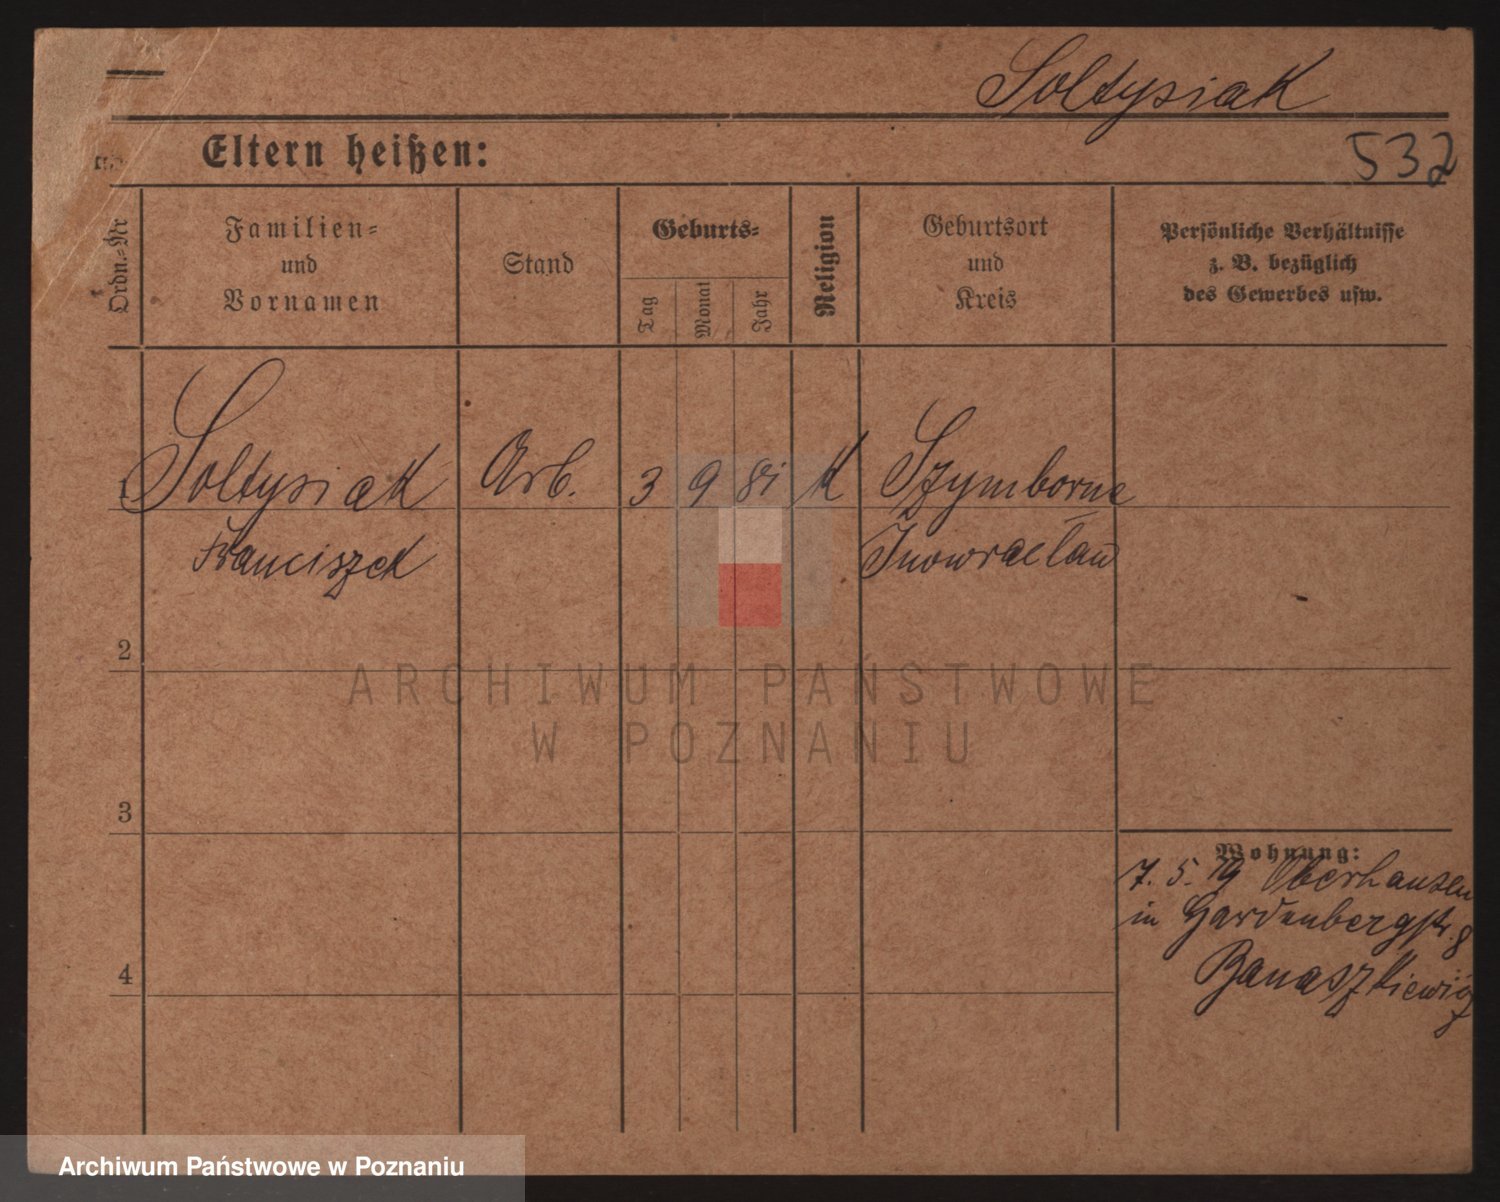 Soltysiak
Eltern heißen:
532
Ordn.-Nr
Familien-
und
Vornamen
Stand
Geburts-
Tag
Monat
Jahr
Religion
Geburtsort
und
Kreis
Persönliche Verhältnisse
z. B. bezüglich
des Gewerbes usw.
1 Soltysiak Arb. 3 9 81 K Szymborne
Franciszek Inowraclaw
2
ARCHIWUM PAŃSTWOWE
W POZNANIU
3
Wohnung:
7. 5. 19 Oberhausen
in Hardenbergstr. 8
4
Banaszkiewicz
Archiwum Państwowe w Poznaniu